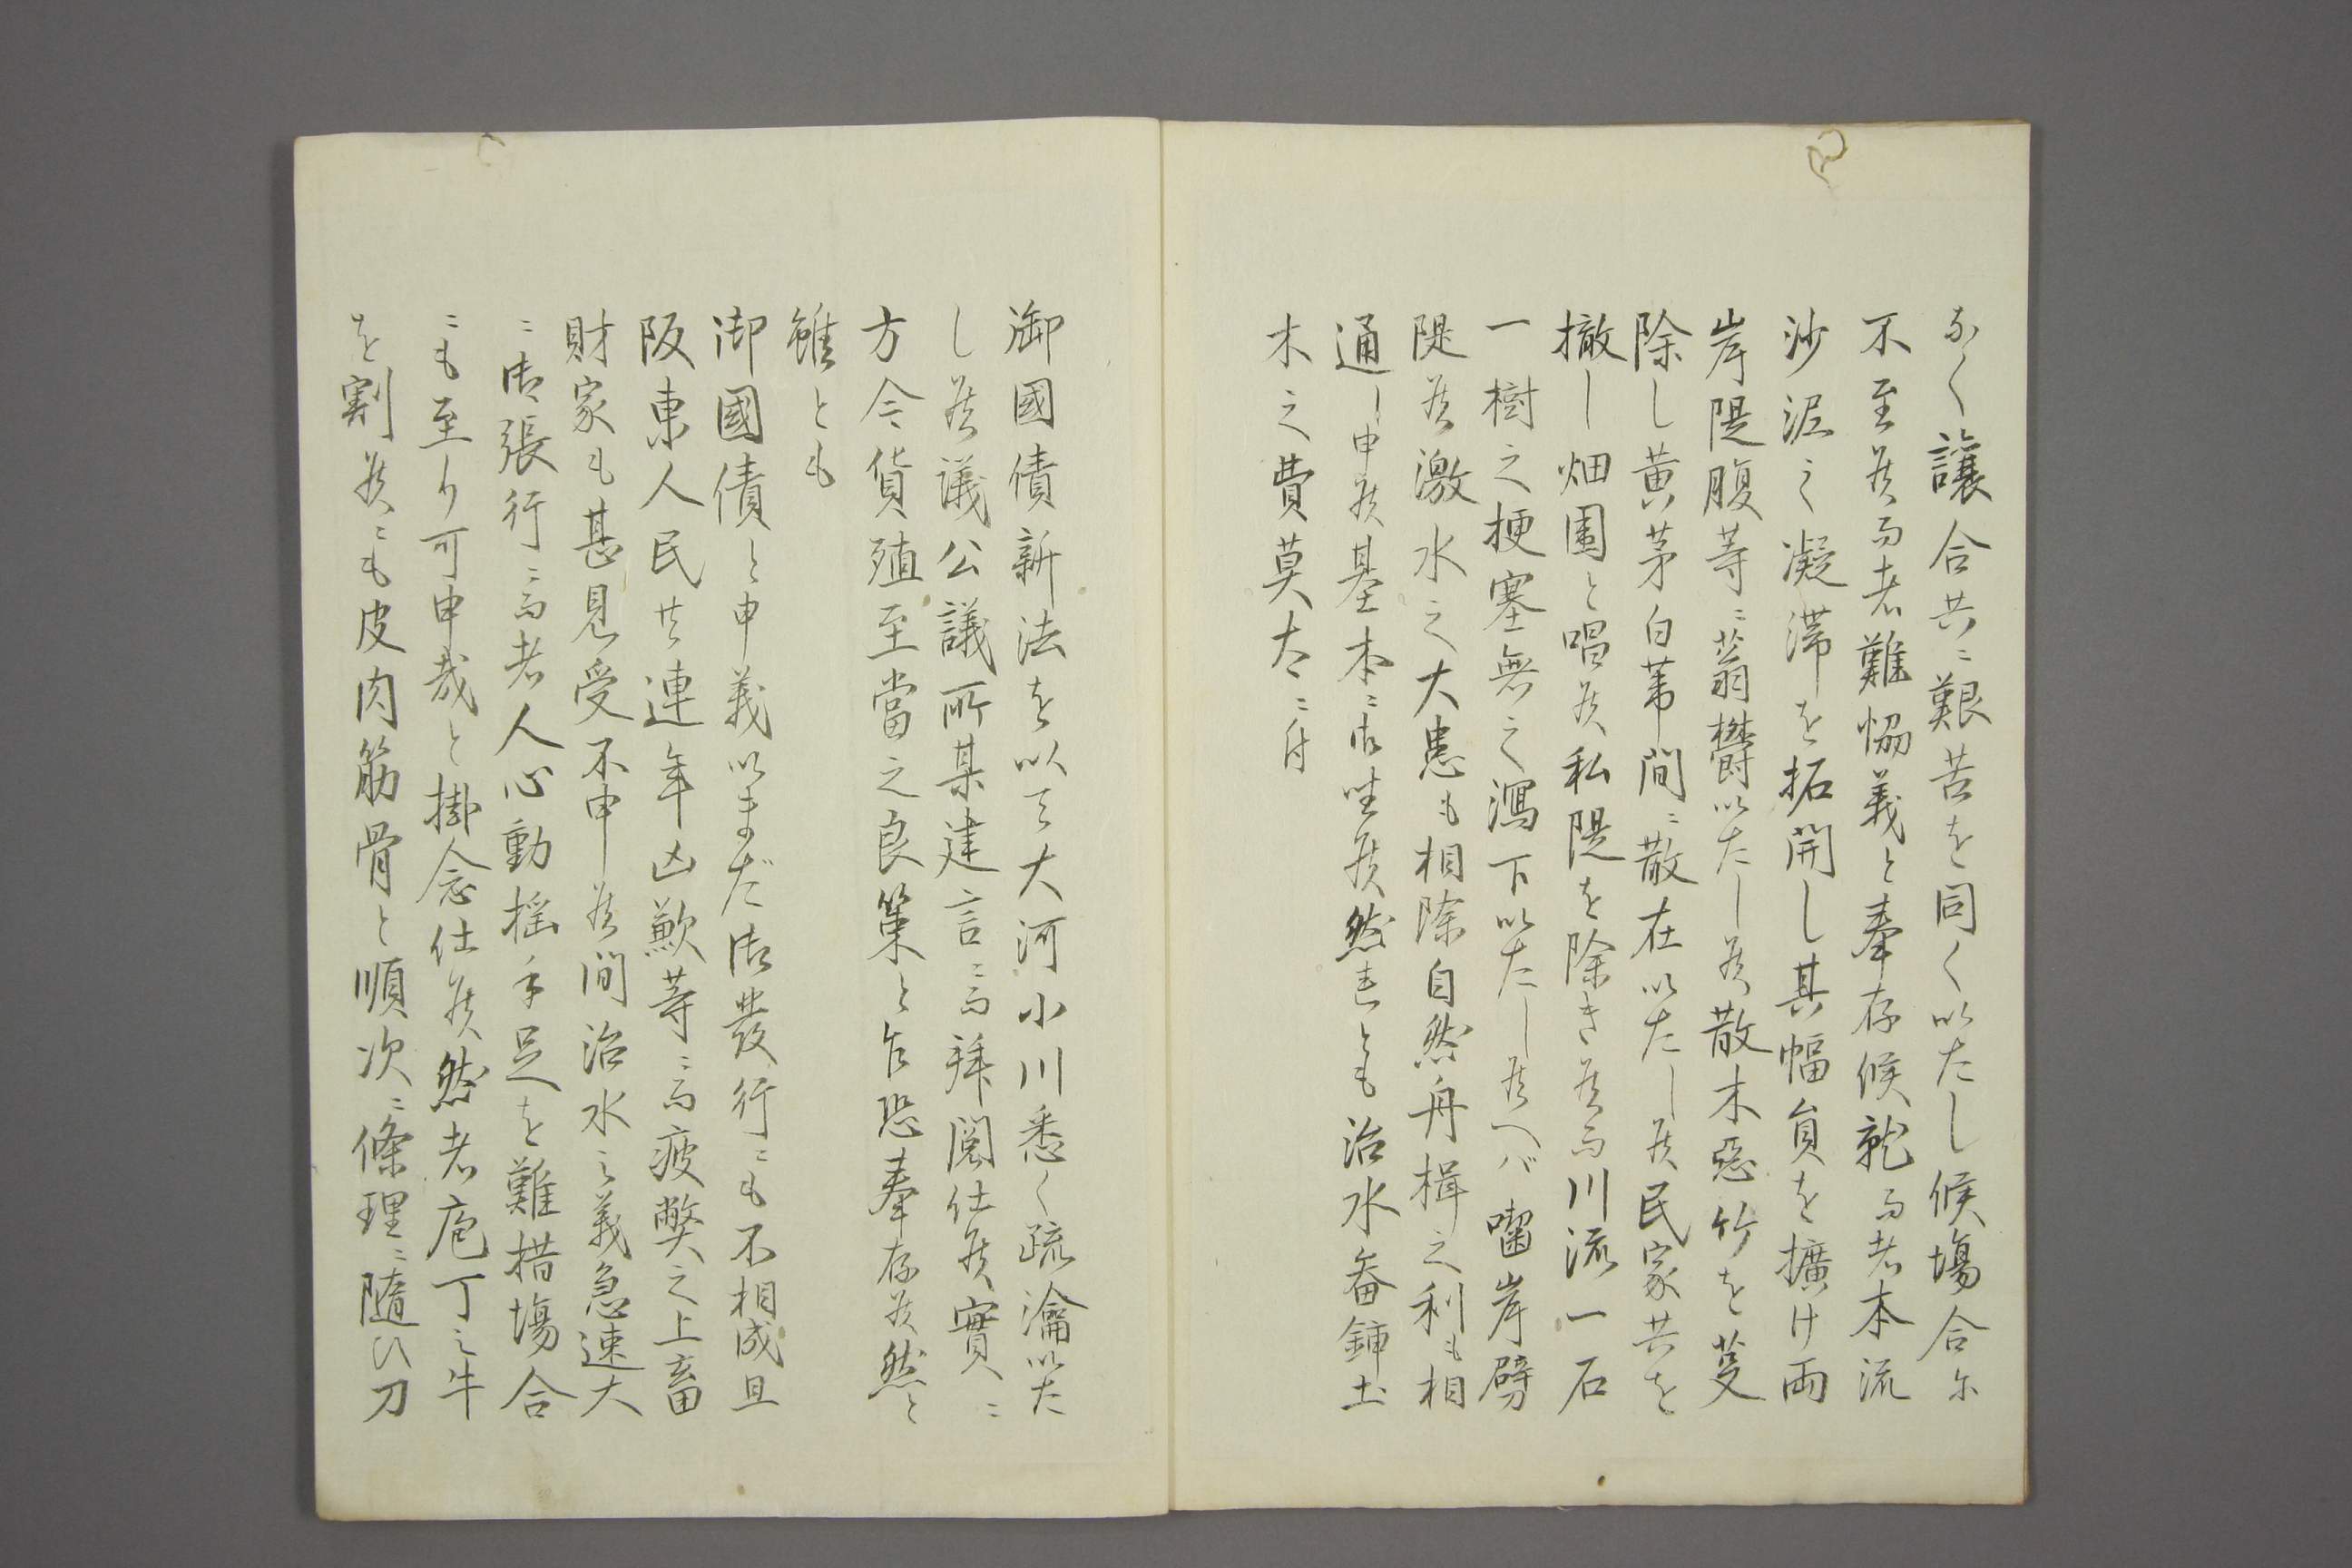 なく讓合共ニ艱苦を同く以たし候塲合ニ
不至候而者難恊義と奉存候就而者本流
沙泥之凝滯を拓開し其幅員を擴け両
岸隄腹等ニ蓊欝以たし候散木惡竹を芟
除し黄茅白葦間ニ散在以たし候民家共を
撤し畑園と唱候私隄を除き候而川流一石
一樹之梗塞無之瀉下以たし候ヘバ囓岸劈
隄候激水之大患も相除自然舟楫之利も相
通し申候基本ニ御坐候然れとも治水畚鍤土
木之費莫大ニ付
御國債新法を以て大河小川悉く疏瀹以た
し候議公議所某建言ニ而拜閲仕候實ニ
方今貨殖至當之良策と乍恐奉存候然と
雖とも
御國債と申義以まだ御發行ニも不相成且
阪東人民共連年凶歉等ニ而疲弊之上畜
財家も甚見受不申候間治水之義急速大
ニ御張行ニ而者人心動揺手足を難措塲合
ニも至り可申哉と掛念仕候然者庖丁之牛
を割候ニも皮肉筋骨と順次ニ條理ニ隨ひ刀